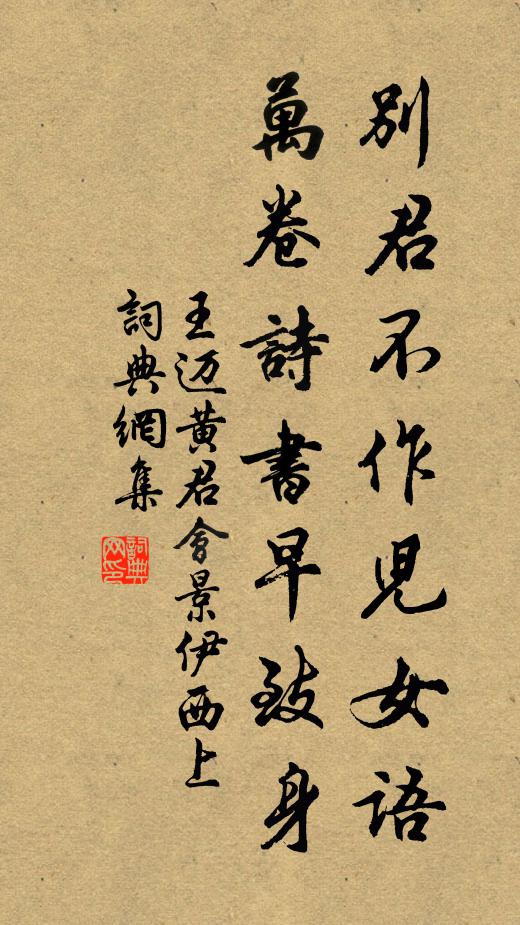 別君不作児女語
萬卷詩書早致身
王迈黄君會景伊西上
詞典網集
詞典网印